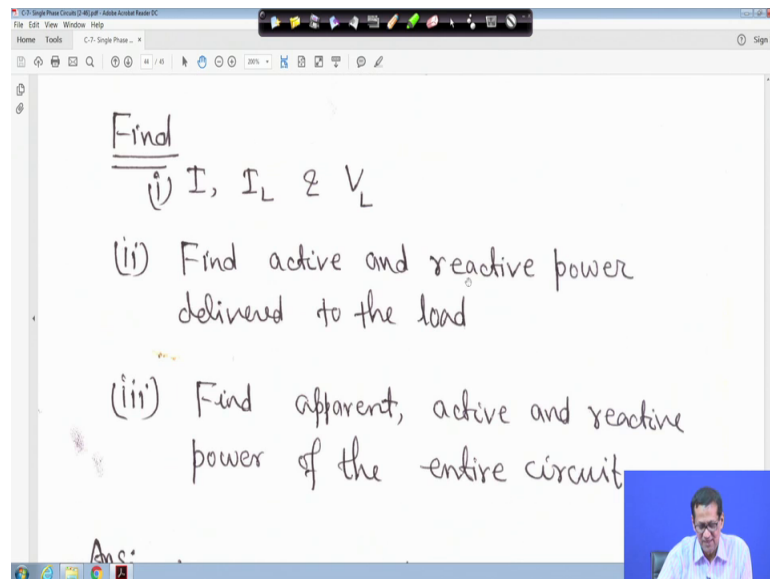 C-7- Single Phase Circuits [2-48].pdf - Adobe Acrobat Reader DC
File Edit View Window Help
Home Tools C-7- Single Phase ... × Sign
44 / 45 200%
Find
(i) I, I_L & V_L
(ii) Find active and reactive power
delivered to the load
(iii) Find apparent, active and reactive
power of the entire circuit
Ans: